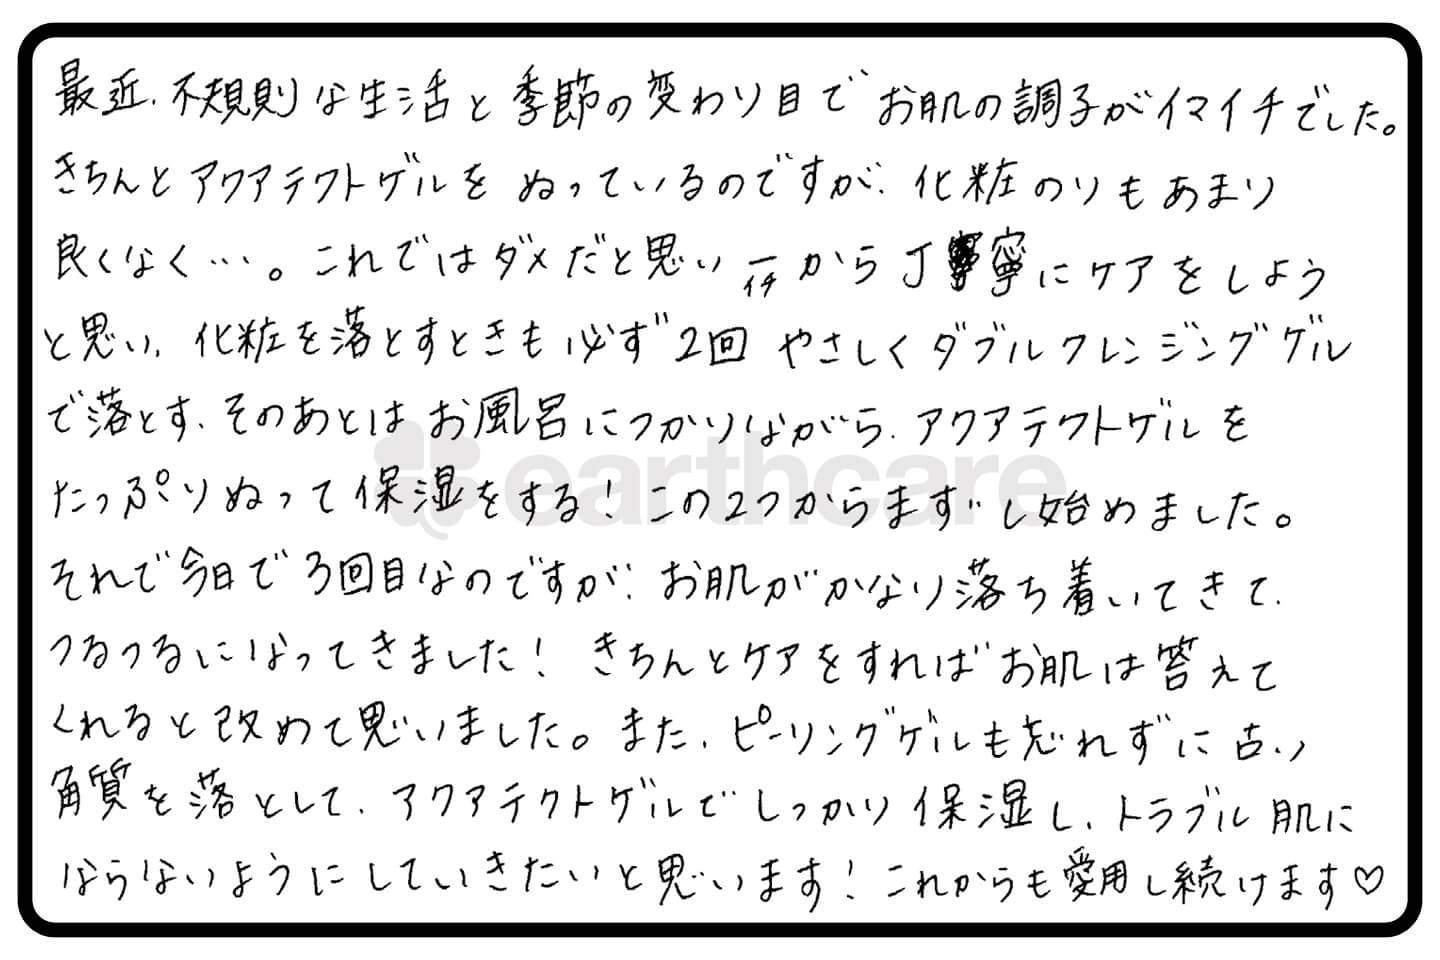 最近、不規則な生活と季節の変わり目でお肌の調子がイマイチでした。
きちんとアクアテクトゲルをぬっているのですが、化粧のりもあまり
良くなく…。これではダメだと思い一からイチ丁寧にケアをしよう
と思い、化粧を落とすときも必ず2回やさしくダブルクレンジングゲル
で落とす、そのあとはお風呂につかりながら、アクアテクトゲルを
earthcare
たっぷりぬって保湿をする！この2つからまずし始めました。
それで今日で3回目なのですが、お肌がかなり落ち着いてきて、
つるつるになってきました！きちんとケアをすればお肌は答えて
くれると改めて思いました。また、ピーリングゲルも忘れずに古い
角質を落として、アクアテクトゲルでしっかり保湿し、トラブル肌に
ならないようにしていきたいと思います！これからも愛用し続けます♡